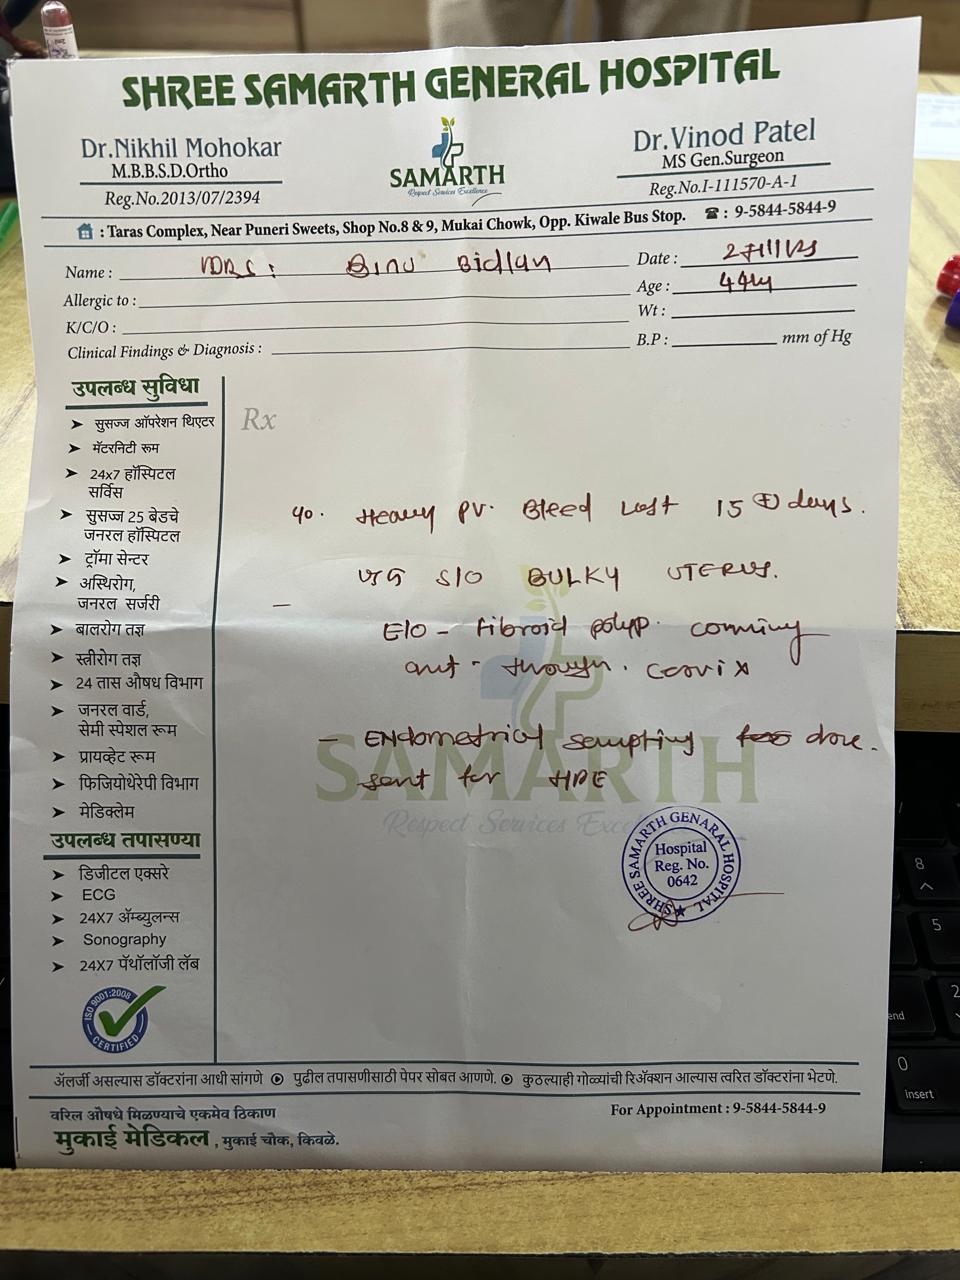 SHREE SAMARTH GENERAL HOSPITAL
Dr.Nikhil Mohokar
M.B.B.S.D.Ortho
Reg.No.2013/07/2394
SAMARTH
Respect Services Excellence
Dr.Vinod Patel
MS Gen.Surgeon
Reg.No.I-111570-A-1
: Taras Complex, Near Puneri Sweets, Shop No.8 & 9, Mukai Chowk, Opp. Kiwale Bus Stop. ☎ : 9-5844-5844-9
Name :
Date :
Allergic to :
Age : 44
K/C/O :
Wt :
Clinical Findings & Diagnosis :
B.P : mm of Hg
उपलब्ध सुविधा
➤ सुसज्ज ऑपरेशन थिएटर
➤ मॅटरनिटी रूम
➤ 24x7 हॉस्पिटल
सर्विस
➤ सुसज्ज 25 बेडचे
जनरल हॉस्पिटल
➤ ट्रॉमा सेन्टर
➤ अस्थिरोग,
जनरल सर्जरी
➤ बालरोग तज्ञ
➤ स्त्रीरोग तज्ञ
➤ 24 तास औषध विभाग
➤ जनरल वार्ड,
सेमी स्पेशल रूम
➤ प्रायव्हेट रूम
➤ फिजियोथेरेपी विभाग
➤ मेडिक्लेम
उपलब्ध तपासण्या
➤ डिजीटल एक्सरे
➤ ECG
➤ 24X7 ॲम्ब्युलन्स
➤ Sonography
➤ 24X7 पॅथॉलॉजी लॅब
ISO 9001:2008
CERTIFIED
Rx
Heavy PV. Bleed last 15 ⊕ days.
S/O BULKY UTERUS.
E/O - fibroid polyp. comming
out - through. cervix
- Endometrial sampling done.
sent for HPE
SAMARTH
Respect Services Exce
SHREE SAMARTH GENARAL HOSPITAL
Hospital
Reg. No.
0642
ॲलर्जी असल्यास डॉक्टरांना आधी सांगणे पुढील तपासणीसाठी पेपर सोबत आणणे. कुठल्याही गोळ्यांची रिॲक्शन आल्यास त्वरित डॉक्टरांना भेटणे.
वरिल औषधे मिळण्याचे एकमेव ठिकाण
मुकाई मेडिकल , मुकाई चौक, किवळे.
For Appointment : 9-5844-5844-9
8
5
2
end
0
insert